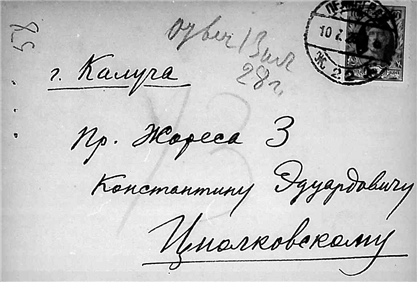 578
ответ 13 июл
28 г.
10 7
г. Калуга
Пр. Жореса 3
Константину Эдуардовичу
Циолковскому